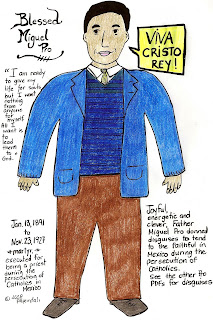 Blessed
Miguel
Pro
VIVA
CRISTO
REY!
"I am ready
to give my
life for souls,
but I want
nothing
from
anyone
for
myself.
All I
want is
to
lead them
to
God.
Jan. 13, 1891
-
Nov. 23, 1927
martyr
executed for
being a priest
during the
persecution of
Catholics in
Mexico
© 2008
Joyful,
energetic and
clever, Father
Miguel Pro donned
disguises to tend
to the faithful in
Mexico during the
persecution of
Catholics.
See the other Pro
PDFs for disguises